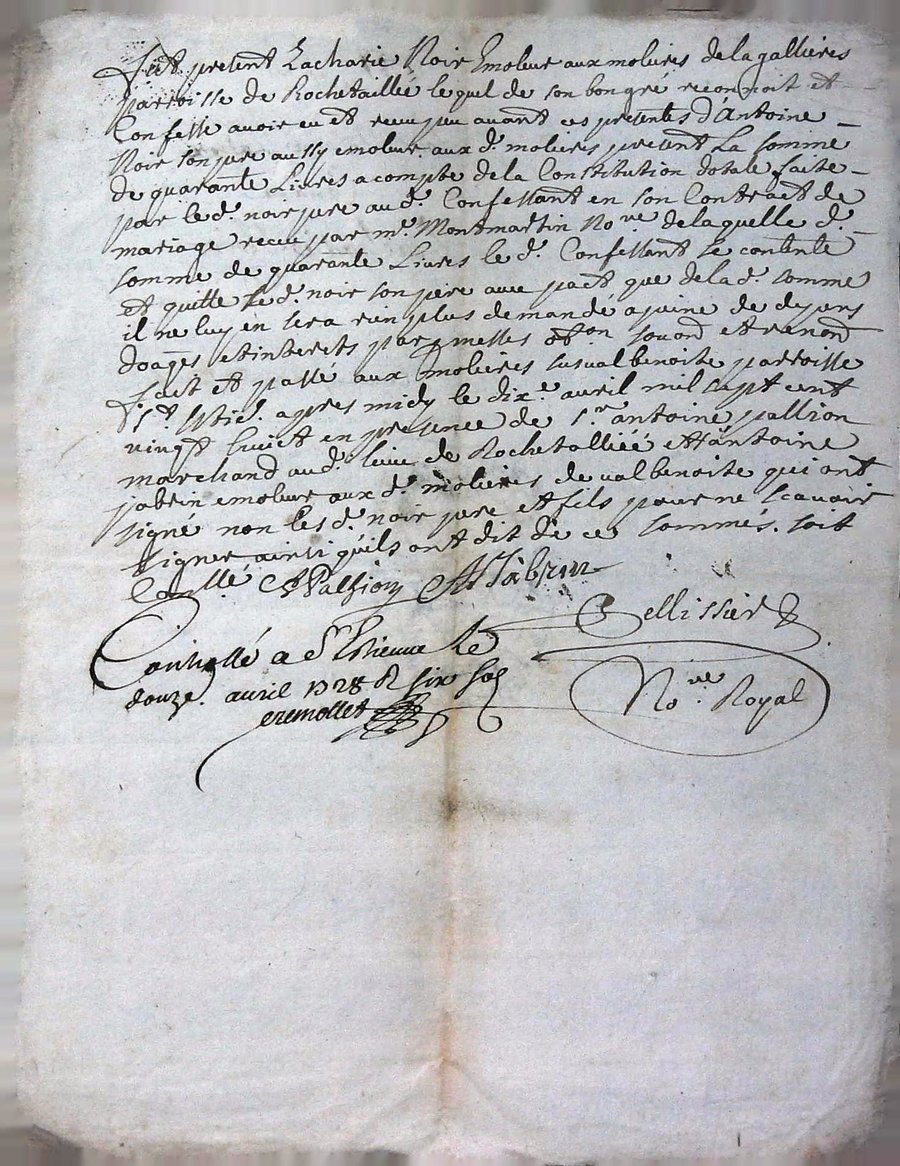 fut present Zacharie Noir Emoleur aux molieres de la gallieres
parroisse de Rochetaillée lequel de son bon gré reconnoit et
Confesse avoir eu et receu peu avant ces presentes d'Antoine
Noir son pere aussy emoleur aux d. molieres present La somme
de quarante Livres a compte de la Constitution dotale faite
par le d. noir pere au d. Confessant en son Contract de
mariage receu par me. Montmartin No.re de laquelle d.
somme de quarante Livres le d. Confessant se contente
et quitte le d. noir son pere avec pact que de la d. somme
il ne luy en sera rien plus demandé a peine de depens
doages et interets par
fait et passé aux molieres sus valbenoite parroisse
St. après midy le dix.e avril mil sept cent
vingt huict en presence de Sr. antoine pallion
marchand au d. lieu de Rochetalliéé et antoine
jabrin emoleur aux d. molieres de valbenoite qui ont
signé non les d. noir pere et fils pour ne scavoir
signer ainsi qu'ils ont dit de ce sommés. soit
Con.llé APallion At Jabrin
Pellissier
Controllé a St Etienne le
douze. avril 1728 R six sols
No.re Royal